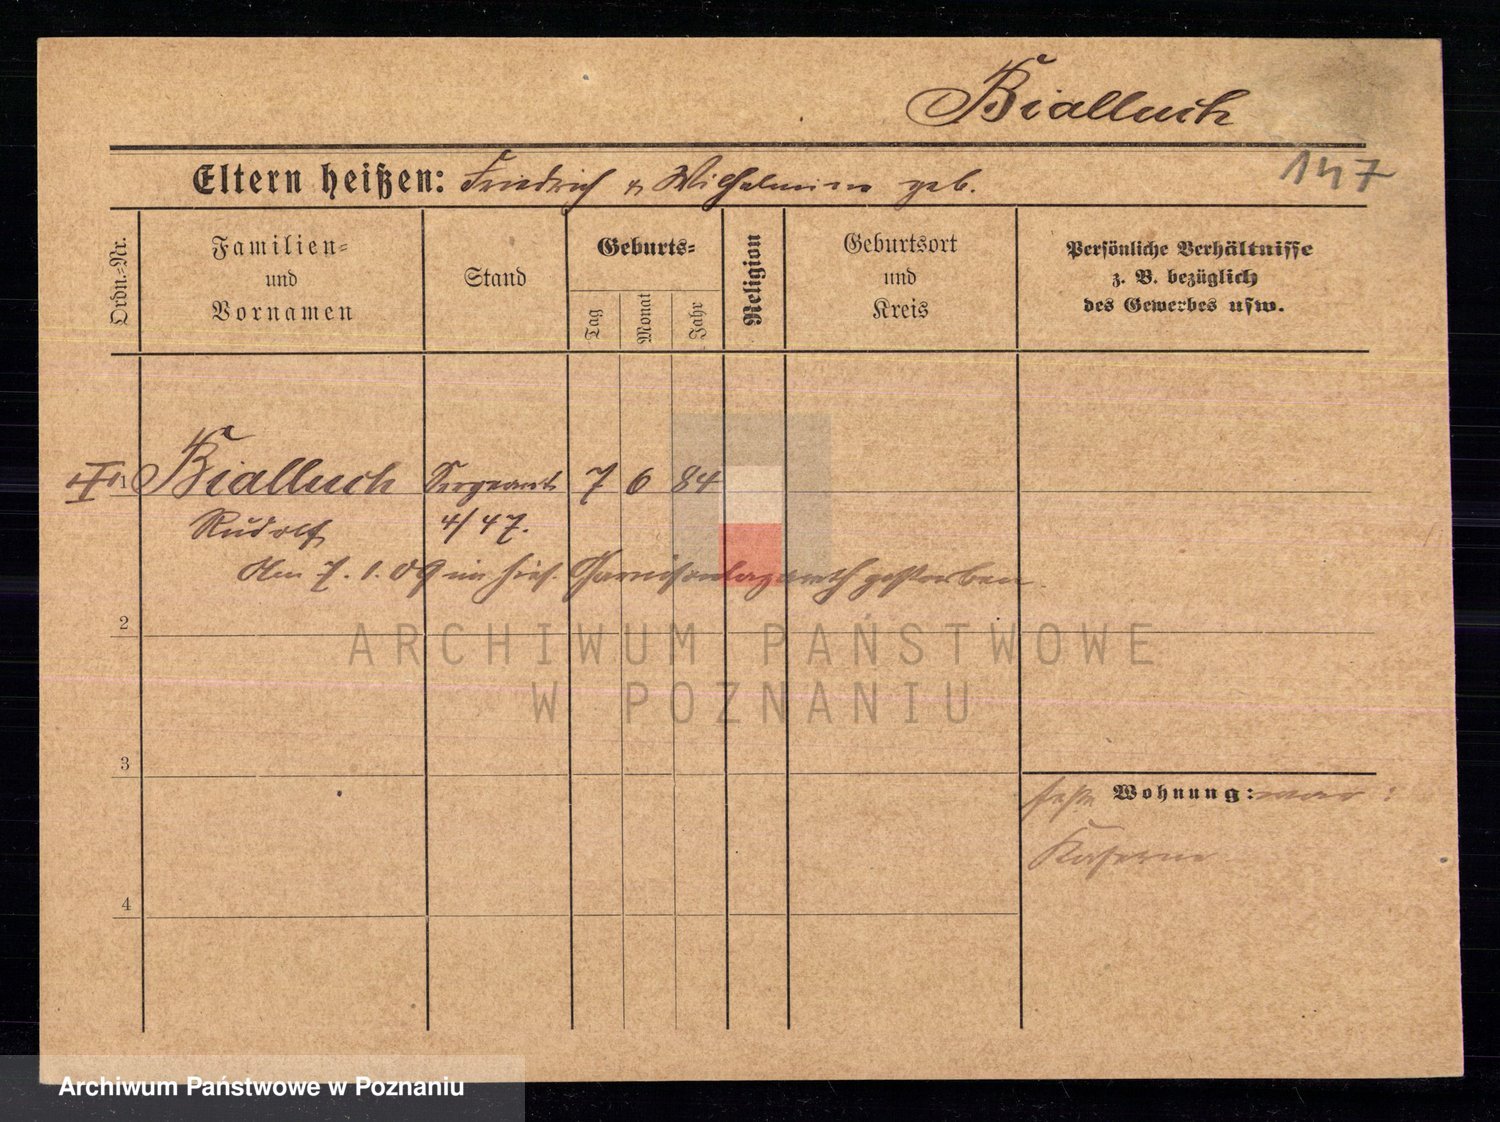 Bialluch
147
Eltern heißen: Friedrich u. Wilhelmine geb.
Ordn.-Nr.
Familien-
und
Vornamen
Stand
Geburts-
Tag
Monat
Jahr
Religion
Geburtsort
und
Kreis
Persönliche Verhältnisse
z. B. bezüglich
des Gewerbes usw.
1 Bialluch Sergeant 7 6 84
Rudolf 4/47.
Am 7.1.09 im hies. Garnisonlazareth gestorben.
2
ARCHIWUM PAŃSTWOWE
W POZNANIU
3
Wohnung: war:
Kaserne
4
Archiwum Państwowe w Poznaniu